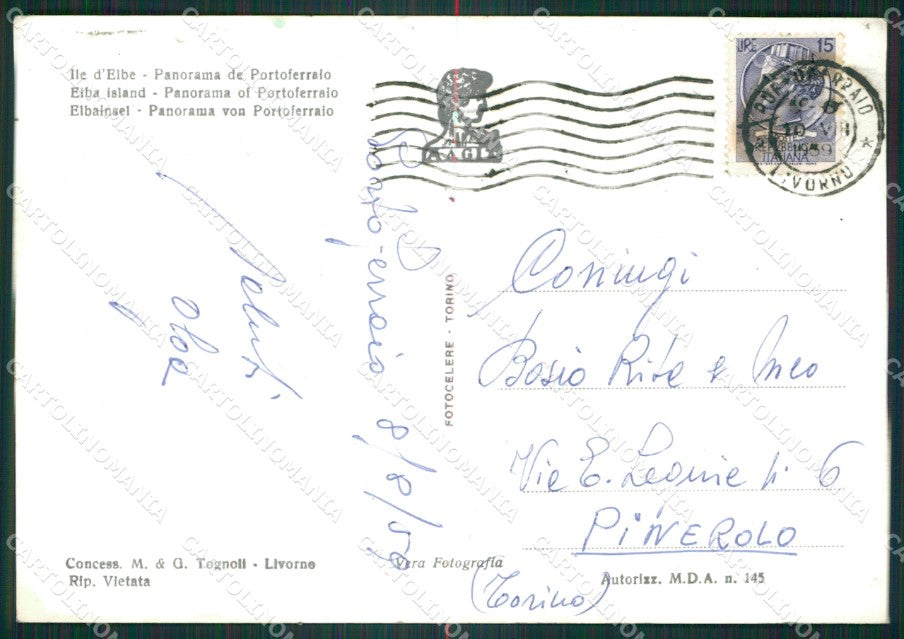 Ile d'Elbe - Panorama de Portoferraio
Elba island - Panorama of Portoferraio
Elbainsel - Panorama von Portoferraio
LIRE 15
ITALIANA
PORTOFERRAIO
LIVORNO
MAGI
Portoferraio 8/8/59
Saluti
FOTOCELERE - TORINO
Coniugi
Bosio Rita e Meo
Via E. Leonie n. 6
PINEROLO
(Torino)
Concess. M. & G. Tognoli - Livorno
Rip. Vietata
Vera Fotografia
Autorizz. M.D.A. n. 145
CARTOLINOMANIA